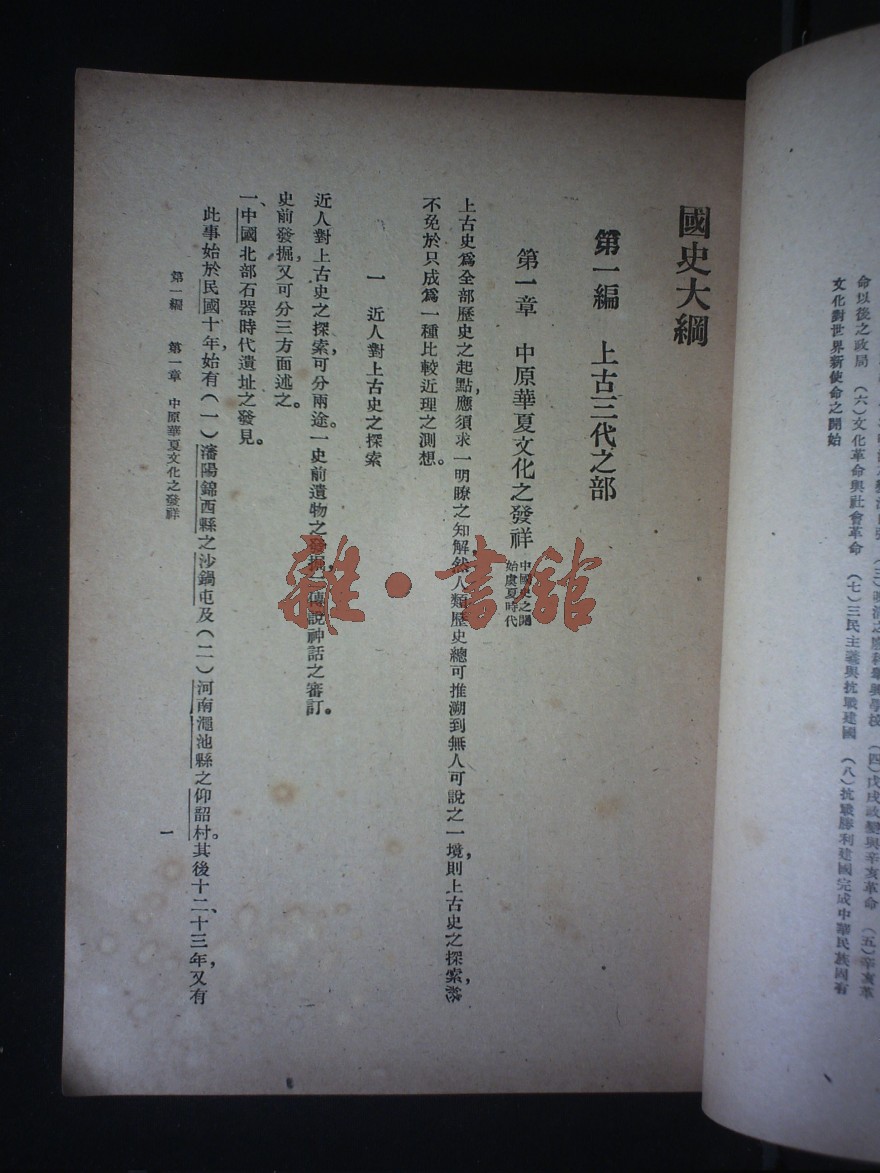 命以後之政局　（六）文化革命與社會革命　（七）三民主義與抗戰建國　（八）抗戰勝利建國完成中華民族固有
文化對世界新使命之開始
國史大綱
第一編　上古三代之部
第一章　中原華夏文化之發祥　中國史之開
始虞夏時代
上古史爲全部歷史之起點，應須求一明瞭之知解。然人類歷史總可推溯到無人可說之一境，則上古史之探索，終
不免於只成爲一種比較近理之測想。
一　近人對上古史之探索
近人對上古史之探索，可分兩途。一史前遺物之發掘，一傳說神話之審訂。
史前發掘，又可分三方面述之。
一、中國北部石器時代遺址之發見。
此事始於民國十年，始有（一）瀋陽錦西縣之沙鍋屯及（二）河南澠池縣之仰韶村。其後十二、十三年，又有
第一編　第一章　中原華夏文化之發祥
一
雜·書館